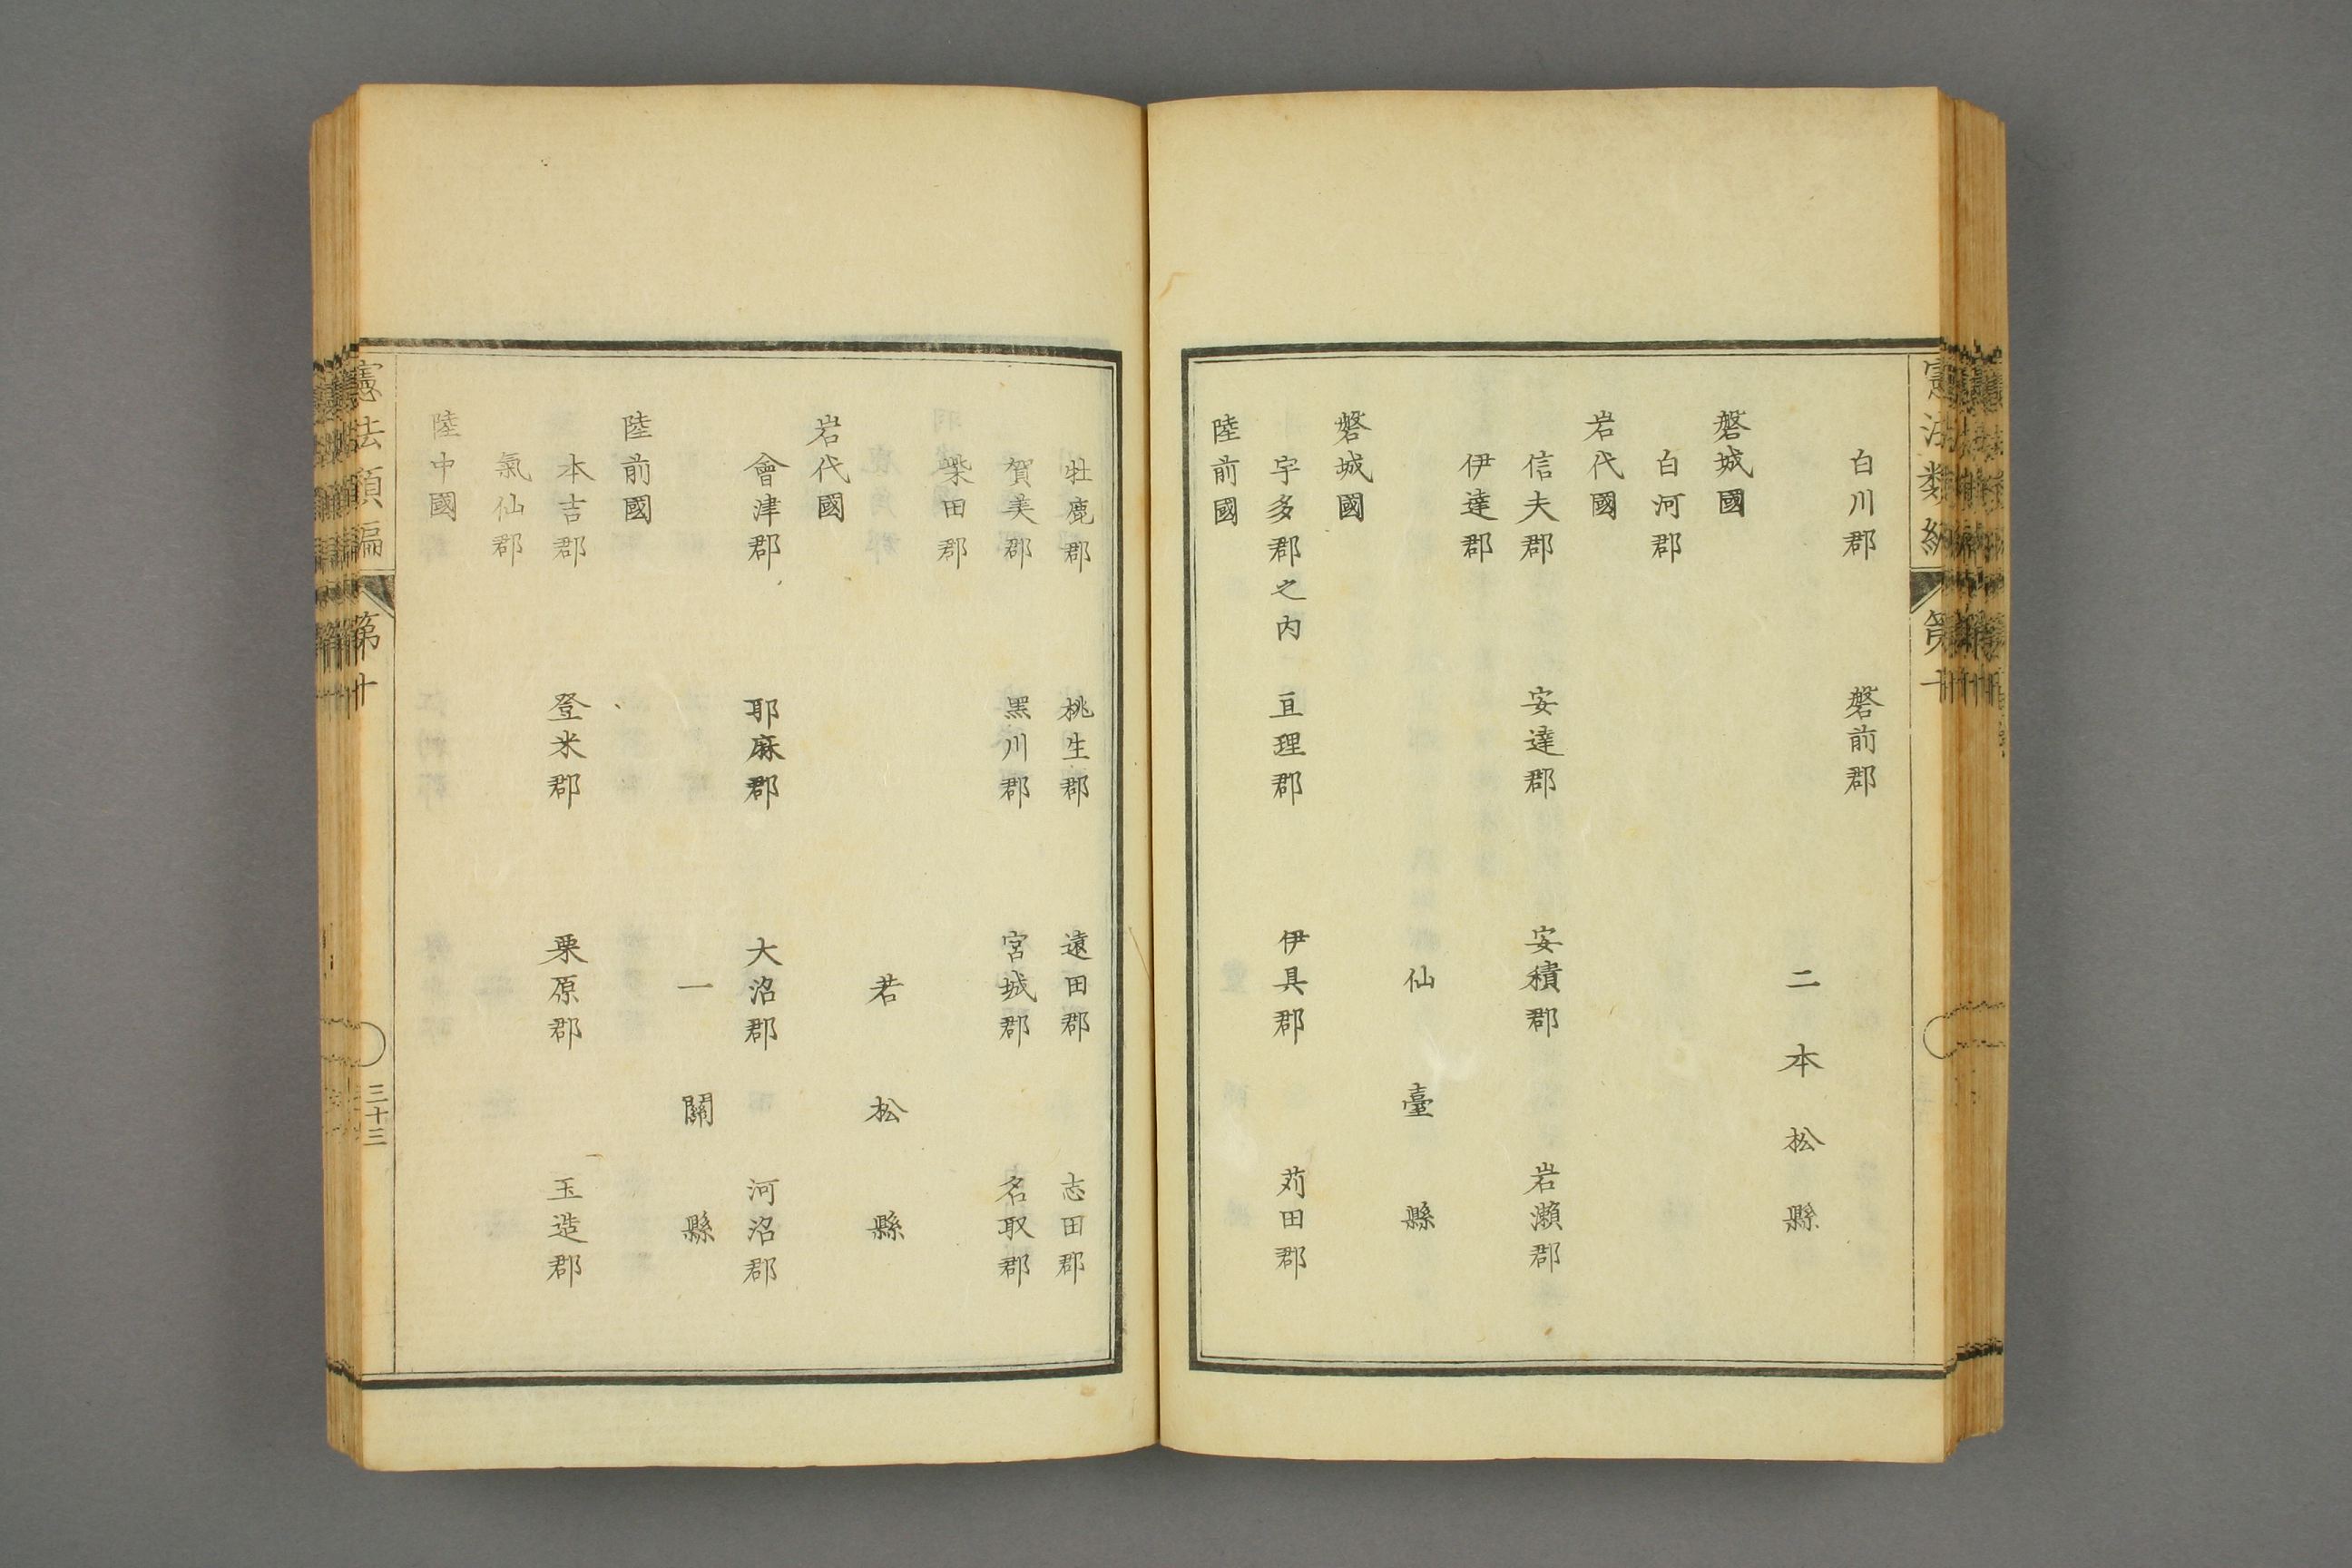 白川郡　磐前郡
二本松縣
磐城國
白河郡
岩代國
信夫郡　安達郡　安積郡　岩瀬郡
伊達郡
仙臺縣
磐城國
宇多郡之内　亘理郡　伊具郡　苅田郡
陸前國
牡鹿郡　桃生郡　遠田郡　志田郡
賀美郡　黑川郡　宮城郡　名取郡
柴田郡
若松縣
岩代國
會津郡　耶麻郡　大沼郡　河沼郡
一關縣
陸前國
本吉郡　登米郡　栗原郡　玉造郡
氣仙郡
陸中國
憲法類編　第十　三十三